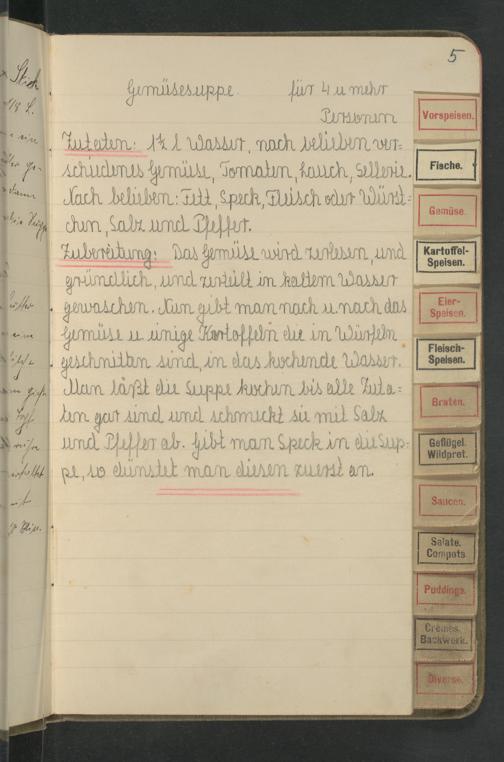 5
Gemüsesuppe. für 4 u mehr
Personen
Zutaten: 1½ l Wasser, nach belieben ver-
schiedenes Gemüse, Tomaten, Lauch, Sellerie.
Nach belieben: Fett, Speck, Fleisch oder Würst=
chen, Salz und Pfeffer.
Zubereitung: Das Gemüse wird zerlesen, und
gründlich, und zerteilt in kaltem Wasser
gewaschen. Nun gibt man nach u nach das
Gemüse u. einige Kartoffeln die in Würfeln
geschnitten sind, in das kochende Wasser.
Man läßt die Suppe kochen bis alle Zuta=
ten gar sind und schmeckt sie mit Salz
und Pfeffer ab. Gibt man Speck in die Sup=
pe, so dünstet man diesen zuerst an.
Vorspeisen.
Fische.
Gemüse.
Kartoffel-
Speisen.
Eier-
Speisen.
Fleisch-
Speisen.
Braten.
Geflügel.
Wildpret.
Saucen.
Salate.
Compots
Puddings.
Crèmes.
Backwerk.
Diverse.